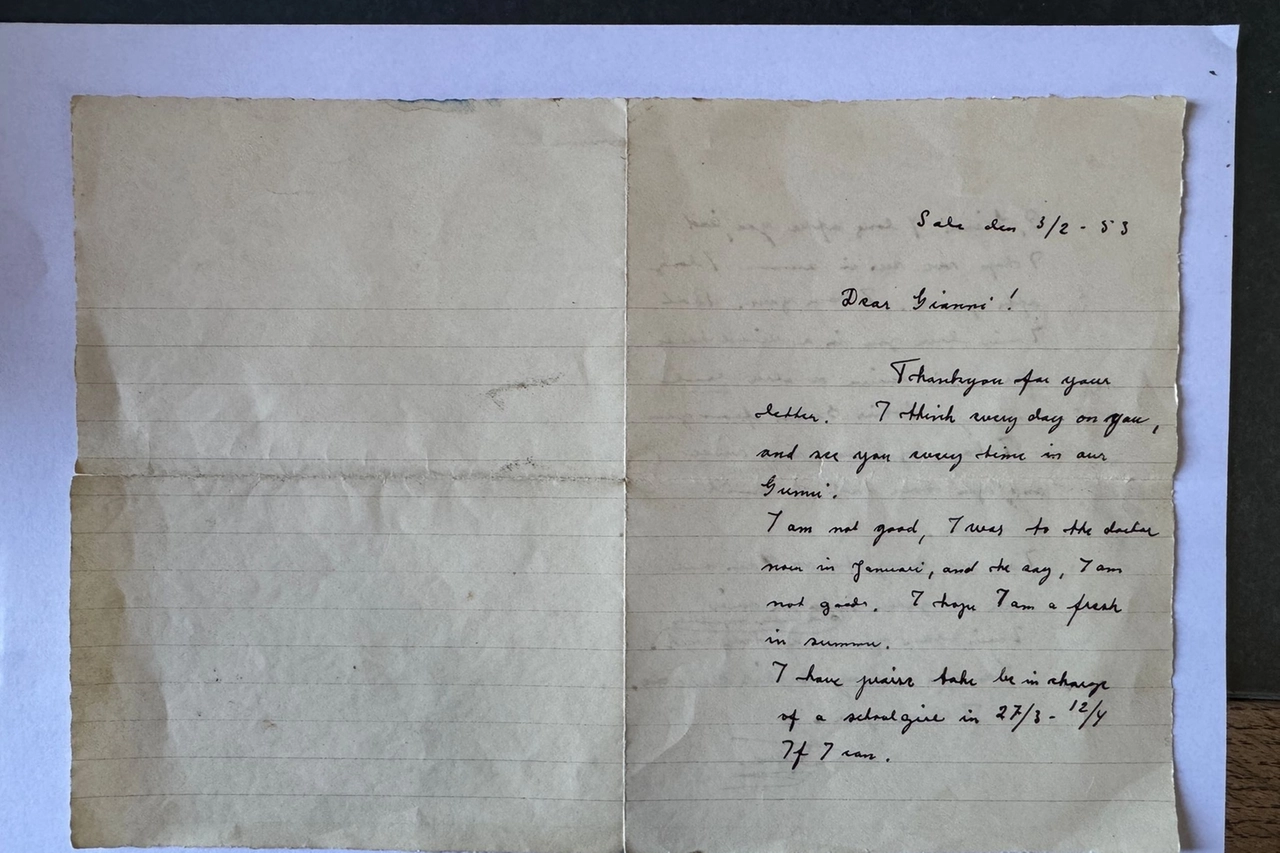 Sala den 3/2 - 53
Dear Gianni!
Thankyou for your
letter. I think every day on you,
and see you every time in our
I am not good, I was to the doctor
now in Januari, and he say, I am
not good. I hope I am a fresh
in summer.
I have praise take be in charge
of a schoolgirl in 27/3 - 12/4
If I can.